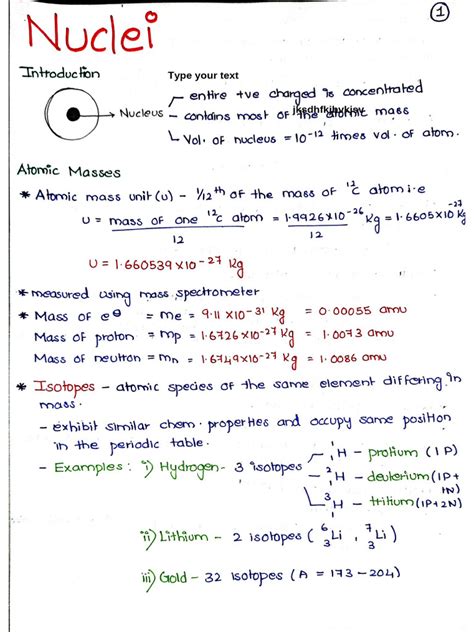 1
Nuclei
Introduction
Type your text
→ Nucleus
entire +ve charged is concentrated
contains most of the atomic mass
jksdhfkjhvkjsv
Vol. of nucleus = 10⁻¹² times vol. of atom.
Atomic Masses
* Atomic mass unit (u) - 1/12 th of the mass of ¹²C atom i.e
u = mass of one ¹²C atom / 12 = 1.9926×10⁻²⁶ / 12 Kg = 1.6605×10⁻²⁷ Kg
U = 1.660539×10⁻²⁷ Kg
* measured using mass spectrometer
* Mass of e⊖ = me = 9.11×10⁻³¹ Kg = 0.00055 amu
Mass of proton = mp = 1.6726×10⁻²⁷ Kg = 1.0073 amu
Mass of neutron = mn = 1.6749×10⁻²⁷ Kg = 1.0086 amu
* Isotopes - atomic species of the same element differing in
mass.
- exhibit similar chem. properties and occupy same position
in the periodic table.
- Examples: i) Hydrogen - 3 isotopes
¹₁H - protium (1P)
²₁H - deuterium (1P+1N)
³₁H - tritium (1P+2N)
ii) Lithium - 2 isotopes (⁶₃Li, ⁷₃Li)
iii) Gold - 32 isotopes (A = 173-204)